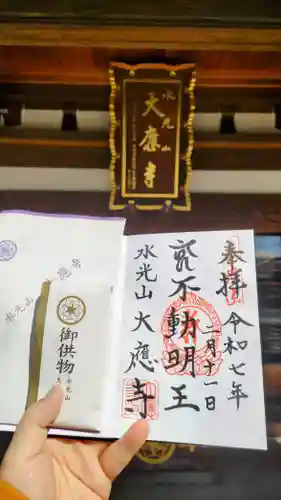 水光山
天應寺
奉拝
令和七年
二月十一日
不動明王
水光山
大應寺
御供物
水光山
大
水光山
大應寺